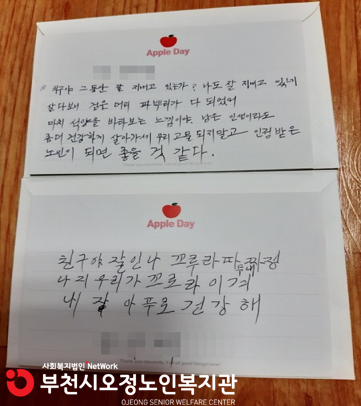 Apple Day
친구야 그동안 잘 지내고 있는가? 나도 잘 지내고 있네
살다보니 검은 머리 파뿌리가 다 되었어
마치 석양을 바라보는 느낌이야. 남은 인생이라도
좀더 건강하게 살아가세 우리 고독 되지말고 인정받은
노인이 되면 좋을 것 같다.
Apple Day
친구야 잘 인나 꼬루라
나지 우리가 꼬로라 이겨
내 잘 아푸로 건강해
사회복지법인 NetWork
부천시오정노인복지관
OJEONG SENIOR WELFARE CENTER